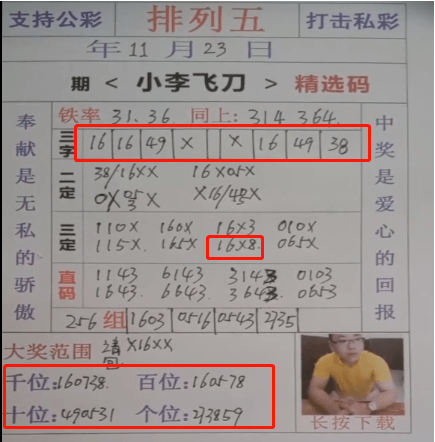 支持公彩 排列五 打击私彩
年11月23日
期 < 小李飞刀 > 精选码
奉献是无私的骄傲
中奖是爱心的回报
铁率 31.36. 同上: 314 364.
三字 16 16 49 X X 16 49 38
二定 38/16XX 16X05X
X16/49X
三定 110X 160X 16X3 010X
115X. 165X 16X8. 065X
直码 1143 6143 3143 0103
1643. 6643. 3643. 0653
256 组 1603 0516 0543 2735
大奖范围 请包 X16XX
千位:160738. 百位:160578
十位:490531 个位:273859
长按下载